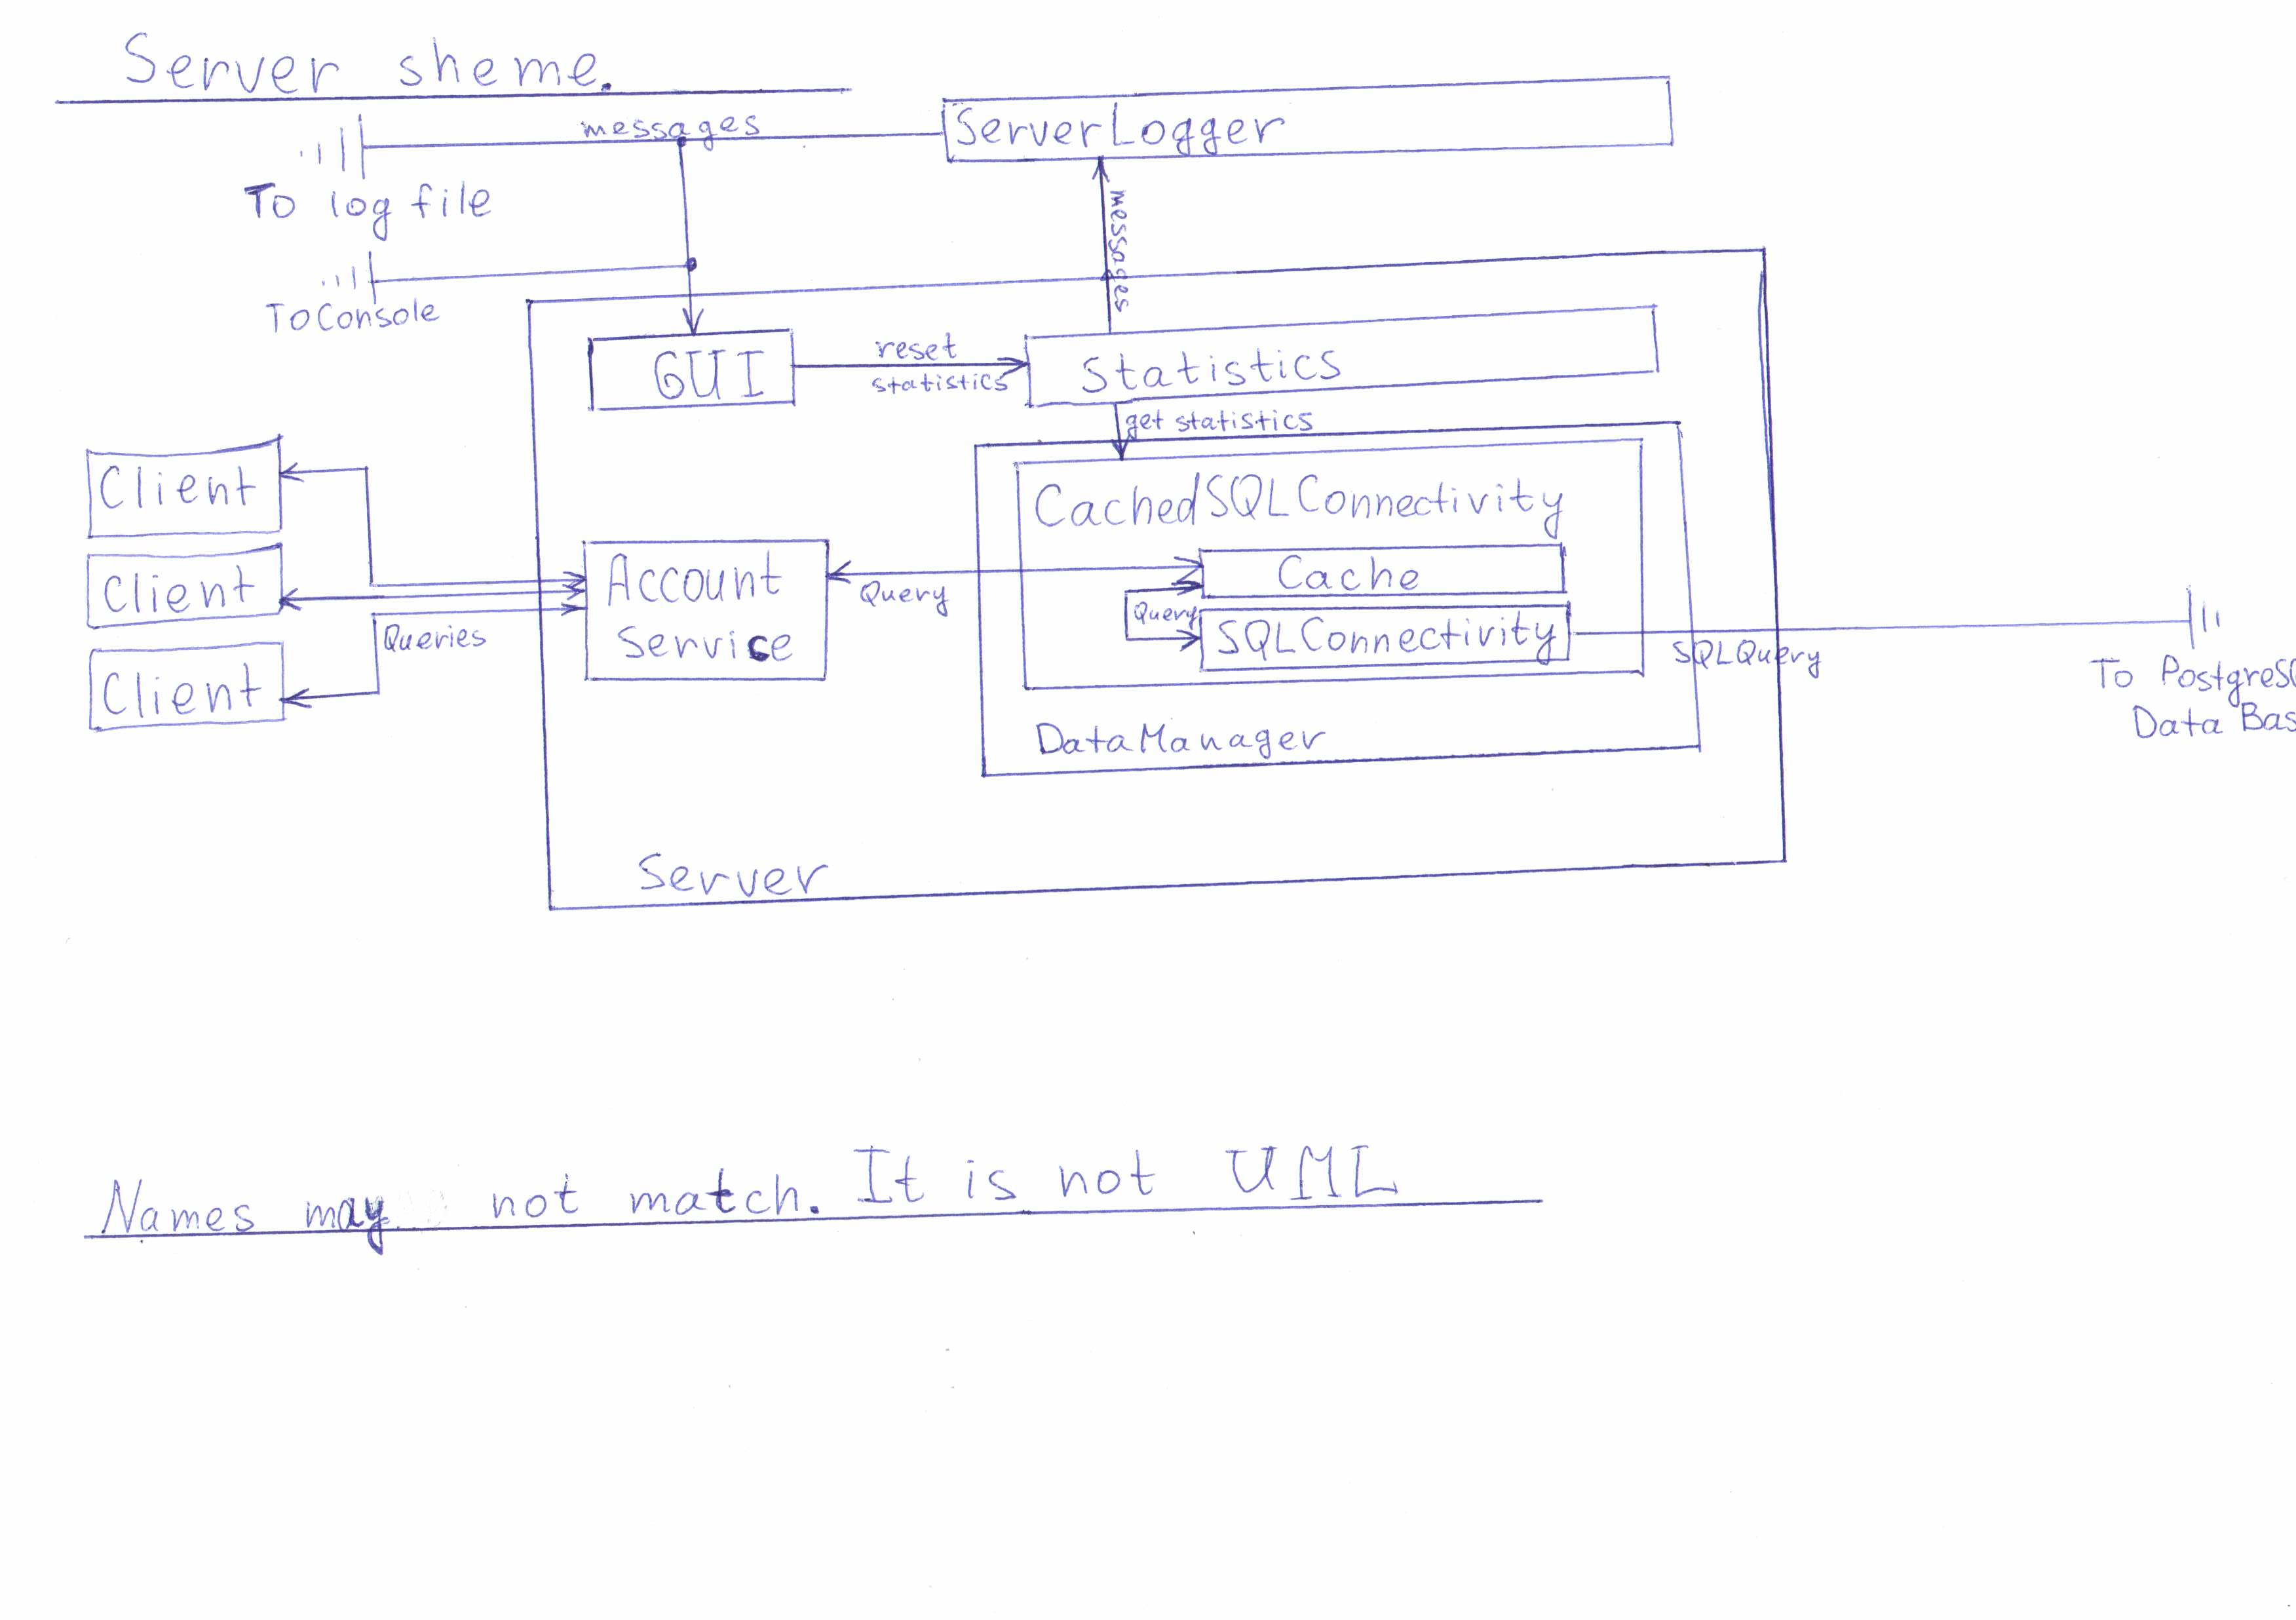 Server sheme.
messages
ServerLogger
To log file
messages
To Console
GUI
reset
statistics
Statistics
get statistics
Client
Client
Client
Queries
Account
Service
Query
CachedSQLConnectivity
Cache
Query
SQLConnectivity
SQLQuery
To PostgresQ
Data Bas
DataManager
Server
Names may not match. It is not UML